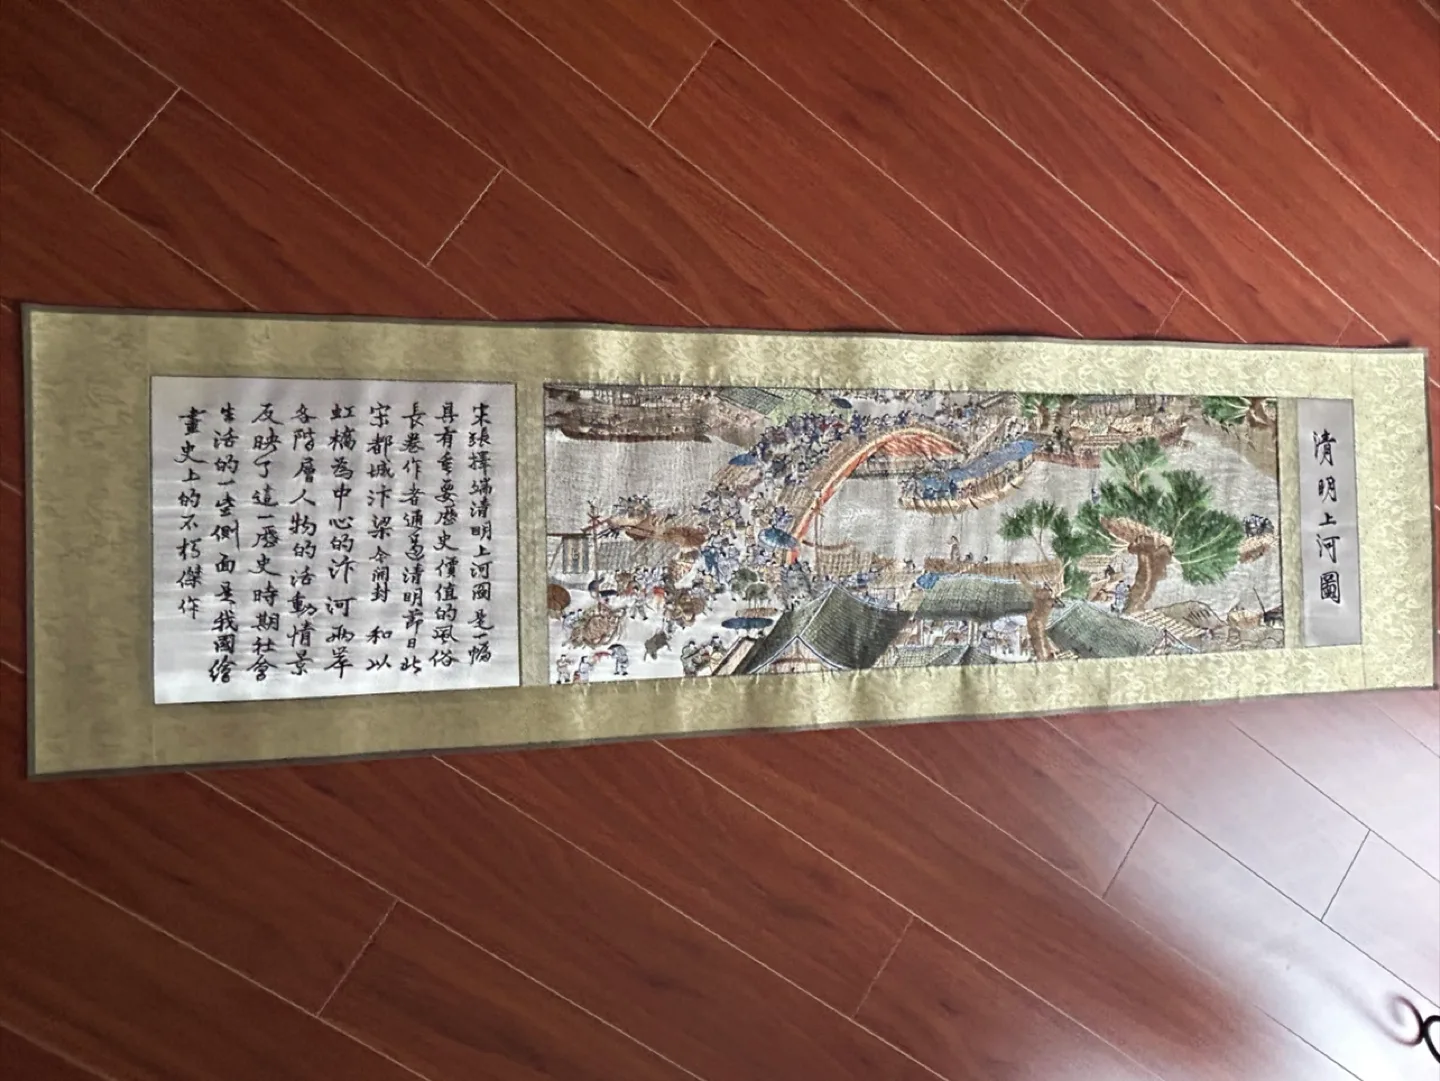 清明上河圖
宋張擇端清明上河圖是一幅
具有重要歷史價值的風俗
長卷作者通過清明節日北
宋都城汴梁今開封和以
虹橋為中心的汴河兩岸
各階層人物的活動情景
反映了這一歷史時期社會
生活的一些側面是我國繪
畫史上的不朽傑作